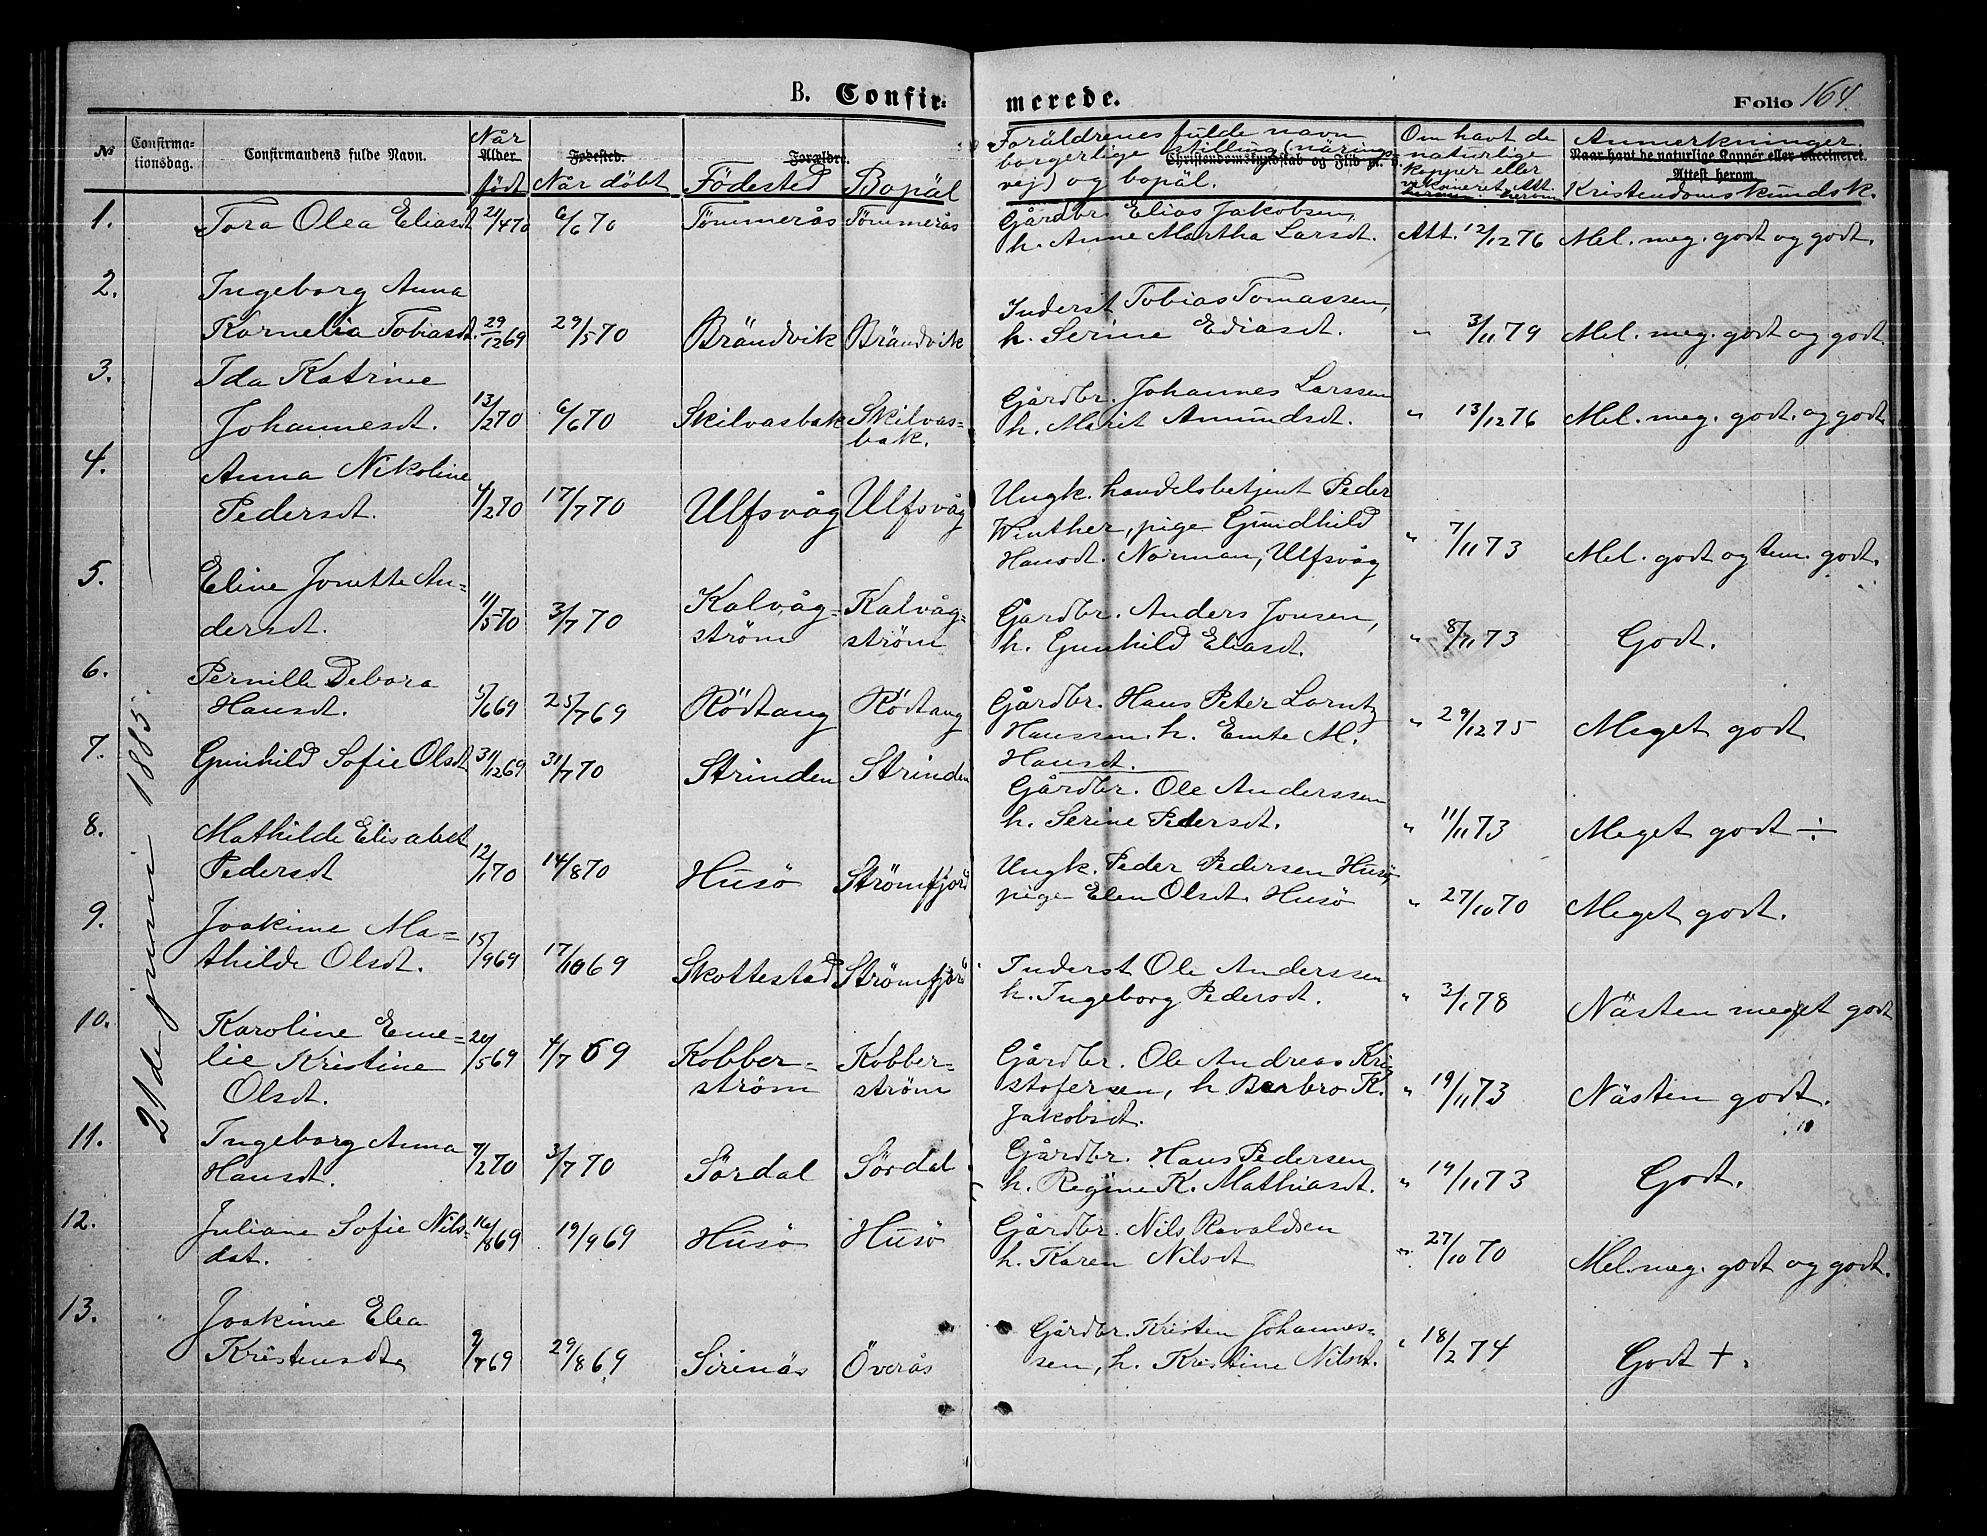 B. Confir- merede. Folio 164.
No Confirma-tionsdag. Confirmandens fulde Navn. Når Alder. født Fødested. Når döbt Forældre. Födested Bopäl
Foräldrenes fulde navn borgerlige stilling (närings-vej) og bopäl. Christendomskundskab og Flid
Om havt de naturlige kopper eller vekcineret. Att. herom.
Anmerkninger. Naar havt de naturlige Kopper eller vaccineret. Attest herom. Kristendomskundsk.
21de juni 1885.
1. Tora Olea Eliasdt 2/470 6/670 Tömmerås Tömmerås Gårdbr. Elias Jakobsen,
h. Anne Martha Larsdt. Att. 12/1276 Mel. meg. godt og godt.
2. Ingeborg Anna
Kornelia Tobiasdt. 29/1269 29/570 Brändvik Brändvik Inderst Tobias Tomassen,
h. Serine Ediasdt. " 3/1179 Mel. meg. godt og godt.
3. Ida Katrine
Johannesdt. 13/270 6/670 Skilvasbak Skilvas=
bak. Gårdbr. Johannes Larssen
h. Marit Amundsdt. " 13/1276 Mel. meg. godt. og godt.
4. Anna Nikoline
Pedersdt. 4/270 17/770 Ulfsvåg Ulfsvåg Ungk. handelsbetjent Peder
Winther, pige Gundhild
Hansdt. Norman, Ulfsvåg " 7/1173 Mel. godt og tem. godt.
5. Eline Jonette An=
dersdt. 11/570 3/770 Kalvåg=
ström Kalvåg=
ström Gårdbr. Anders Jonsen,
h. Gunhild Eliasdt. " 8/1173 Godt.
6. Pernille Debora
Hansdt. 5/669 25/769 Rödtang Rödtang Gårdbr. Hans Peter Lorntz
Hanssen. h. Emte M.
Hansdt. " 29/1275 Meget godt
7. Gunhild Sofie Olsdt 31/1269 31/770 Strinden Strinden Gårdbr. Ole Anderssen
h. Serine Pedersdt. " 11/1173 Meget godt ÷
8. Mathilde Elisabet
Pedersdt 12/170 14/870 Husö Strömfjord Ungk. Peder Pedersen Husö,
pige Elen Olsdt. Husö " 27/1070 Meget godt.
9. Joakime Ma=
thilde Olsdt. 15/969 17/1069 Skottestad Strömfjord Inderst Ole Anderssen
h. Ingeborg Pedersdt. " 3/178 Nästen meget godt
10. Karoline Eme=
lie Kristine
Olsdt. 24/569 4/769 Kobber=
ström Kobber=
ström Gårdbr. Ole Andreas Kri
stofersen, h. Berbro K.
Jakobsdt. " 19/1173 Nästen godt.
11. Ingeborg Anna
Hansdt. 7/270 3/770 Sördal Sördal Gårdbr. Hans Pedersen
h. Regine K. Mathiasdt. " 19/1173 Godt.
12. Juliane Sofie Nils=
dat. 16/869 19/969 Husö Husö Gårdbr. Nils Ravaldsen
h. Karen Nilsdt " 27/1070 Mel. meg. godt og godt.
13. Joakime Elea
Kristensdt. 9/769 29/869 Sirinäs Överås Gårdbr. Kristen Johannes=
sen, h. Kristine Nilsdt. " 18/274 Godt +.